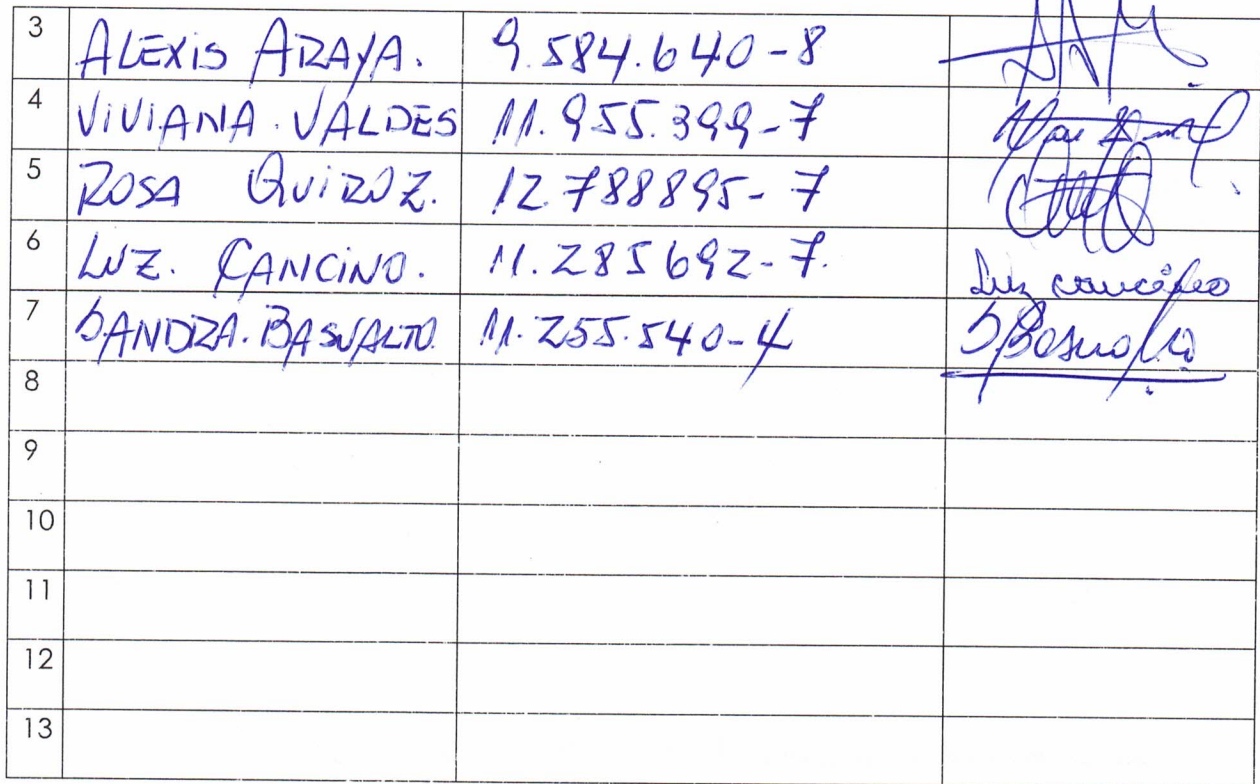 3 ALEXIS ARAYA. 9.584.640-8
4 VIVIANA. VALDES 11.955.399-7
5 ROSA QUIROZ. 12.788895-7
6 LUZ. CANCINO. 11.285692-7. Luz cancino
7 SANDRA. BASUALTO. 11.255.540-4 SBasualto
8
9
10
11
12
13